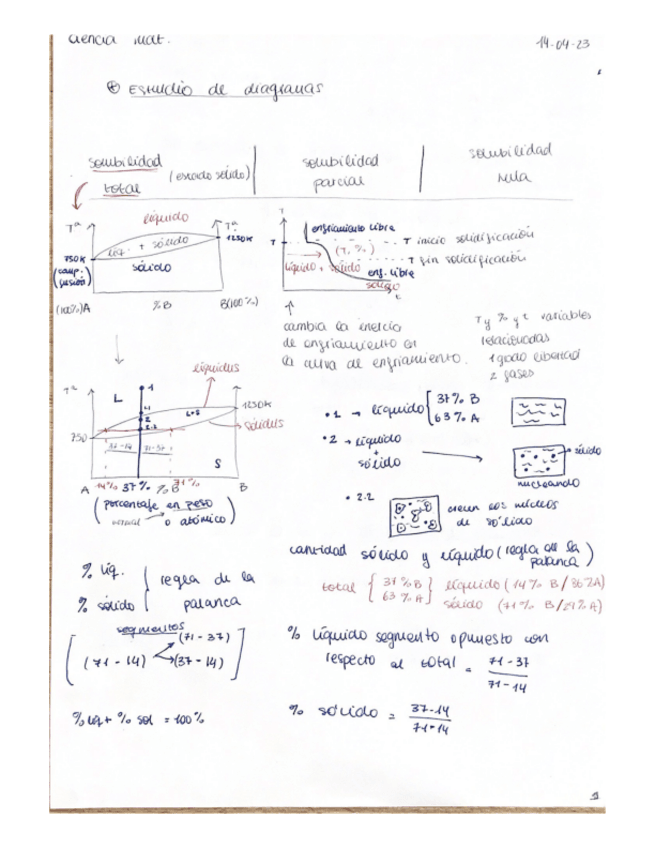 ciencia mat.
14-04-23
⊕ Estudio de diagramas
solubilidad total (estado sólido)
solubilidad parcial
solubilidad nula
líquido
Tª
Tª
1230K
liq. + sólido
750K
sólido
(temp. fusión)
(100%)A
%B
B(100%)
T
enfriamiento libre
T
T inicio solidificación
(T, %)
T fin solidificación
líquido + sólido
enf. libre
sólido
t
cambia la inercia
de enfriamiento en
la curva de enfriamiento.
T y % y t variables
relacionadas
1 grado libertad
2 fases
líquidus
Tª
L
1
L+S
1230K
2
2.2
sólidus
750
37-14
71-37
S
A
14%
37%
%B
71%
B
(porcentaje en peso
o atómico)
• 1 → líquido { 37% B
63% A
• 2 → líquido
+
sólido
sólido
nucleando
• 2.2
crecen los núcleos
de sólido
cantidad sólido y líquido (regla de la
palanca)
% liq.
% sólido
regla de la
palanca
total { 37% B
63% A } líquido (14% B/86%A)
sólido (71% B/29%A)
segmentos
(71 - 14)
(71 - 37)
(37 - 14)
% líquido segmento opuesto con
respecto al total = 71-37
71-14
% liq + % sol = 100%
% sólido = 37-14
71-14
1